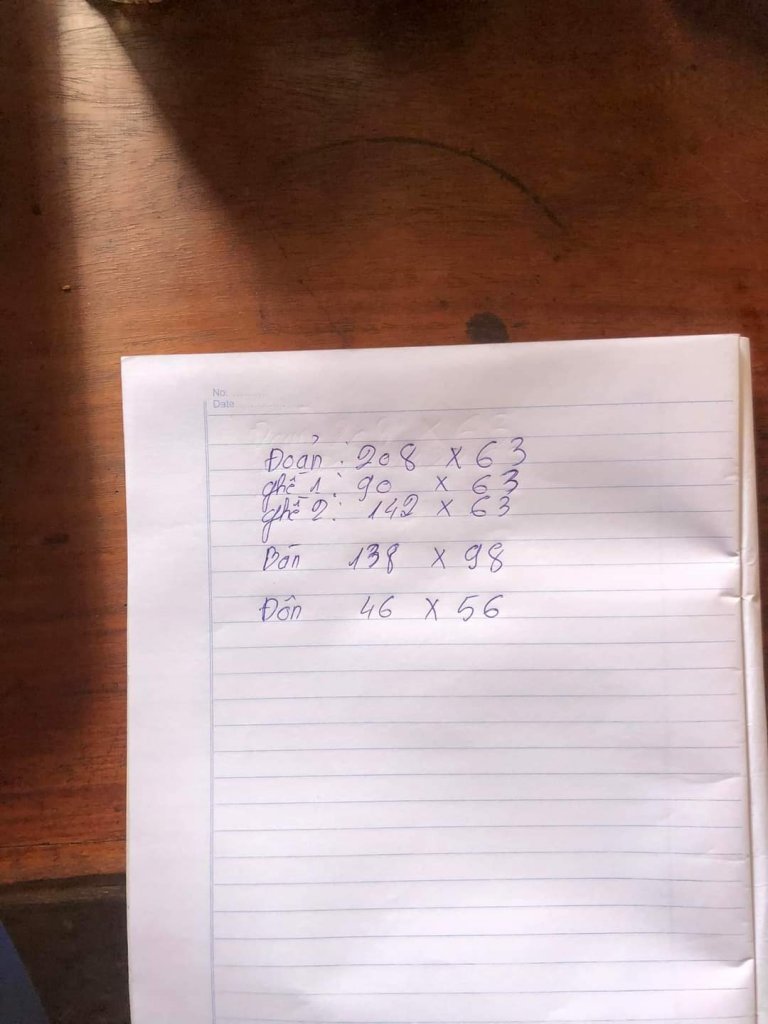 No.
Date
Đoản : 208 x 63
ghế 1 : 90 x 63
ghế 2 : 142 x 63
Bàn 138 x 98
Đôn 46 x 56